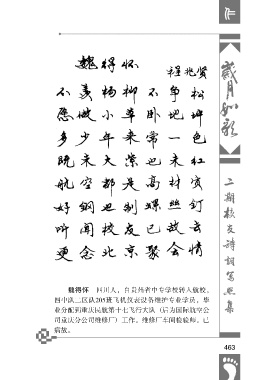 魏得怀
程兆贤
不羡杨柳不争松
愿做小草卧地坪
多少年来常一色
既未大紫也未红
航空都是高材质
好钢也到螺丝钉
听闻校友已故去
更念北京聚会情
魏得怀　四川人，自贡盐省中专学校转入航校。
四中队二区队205班飞机仪表设备维护专业学员。毕
业分配到重庆民航第十七飞行大队（后为国际航空公
司重庆分公司维修厂）工作。维修厂车间检验师。已
病故。
岁月如歌
二期校友诗词写照集
463